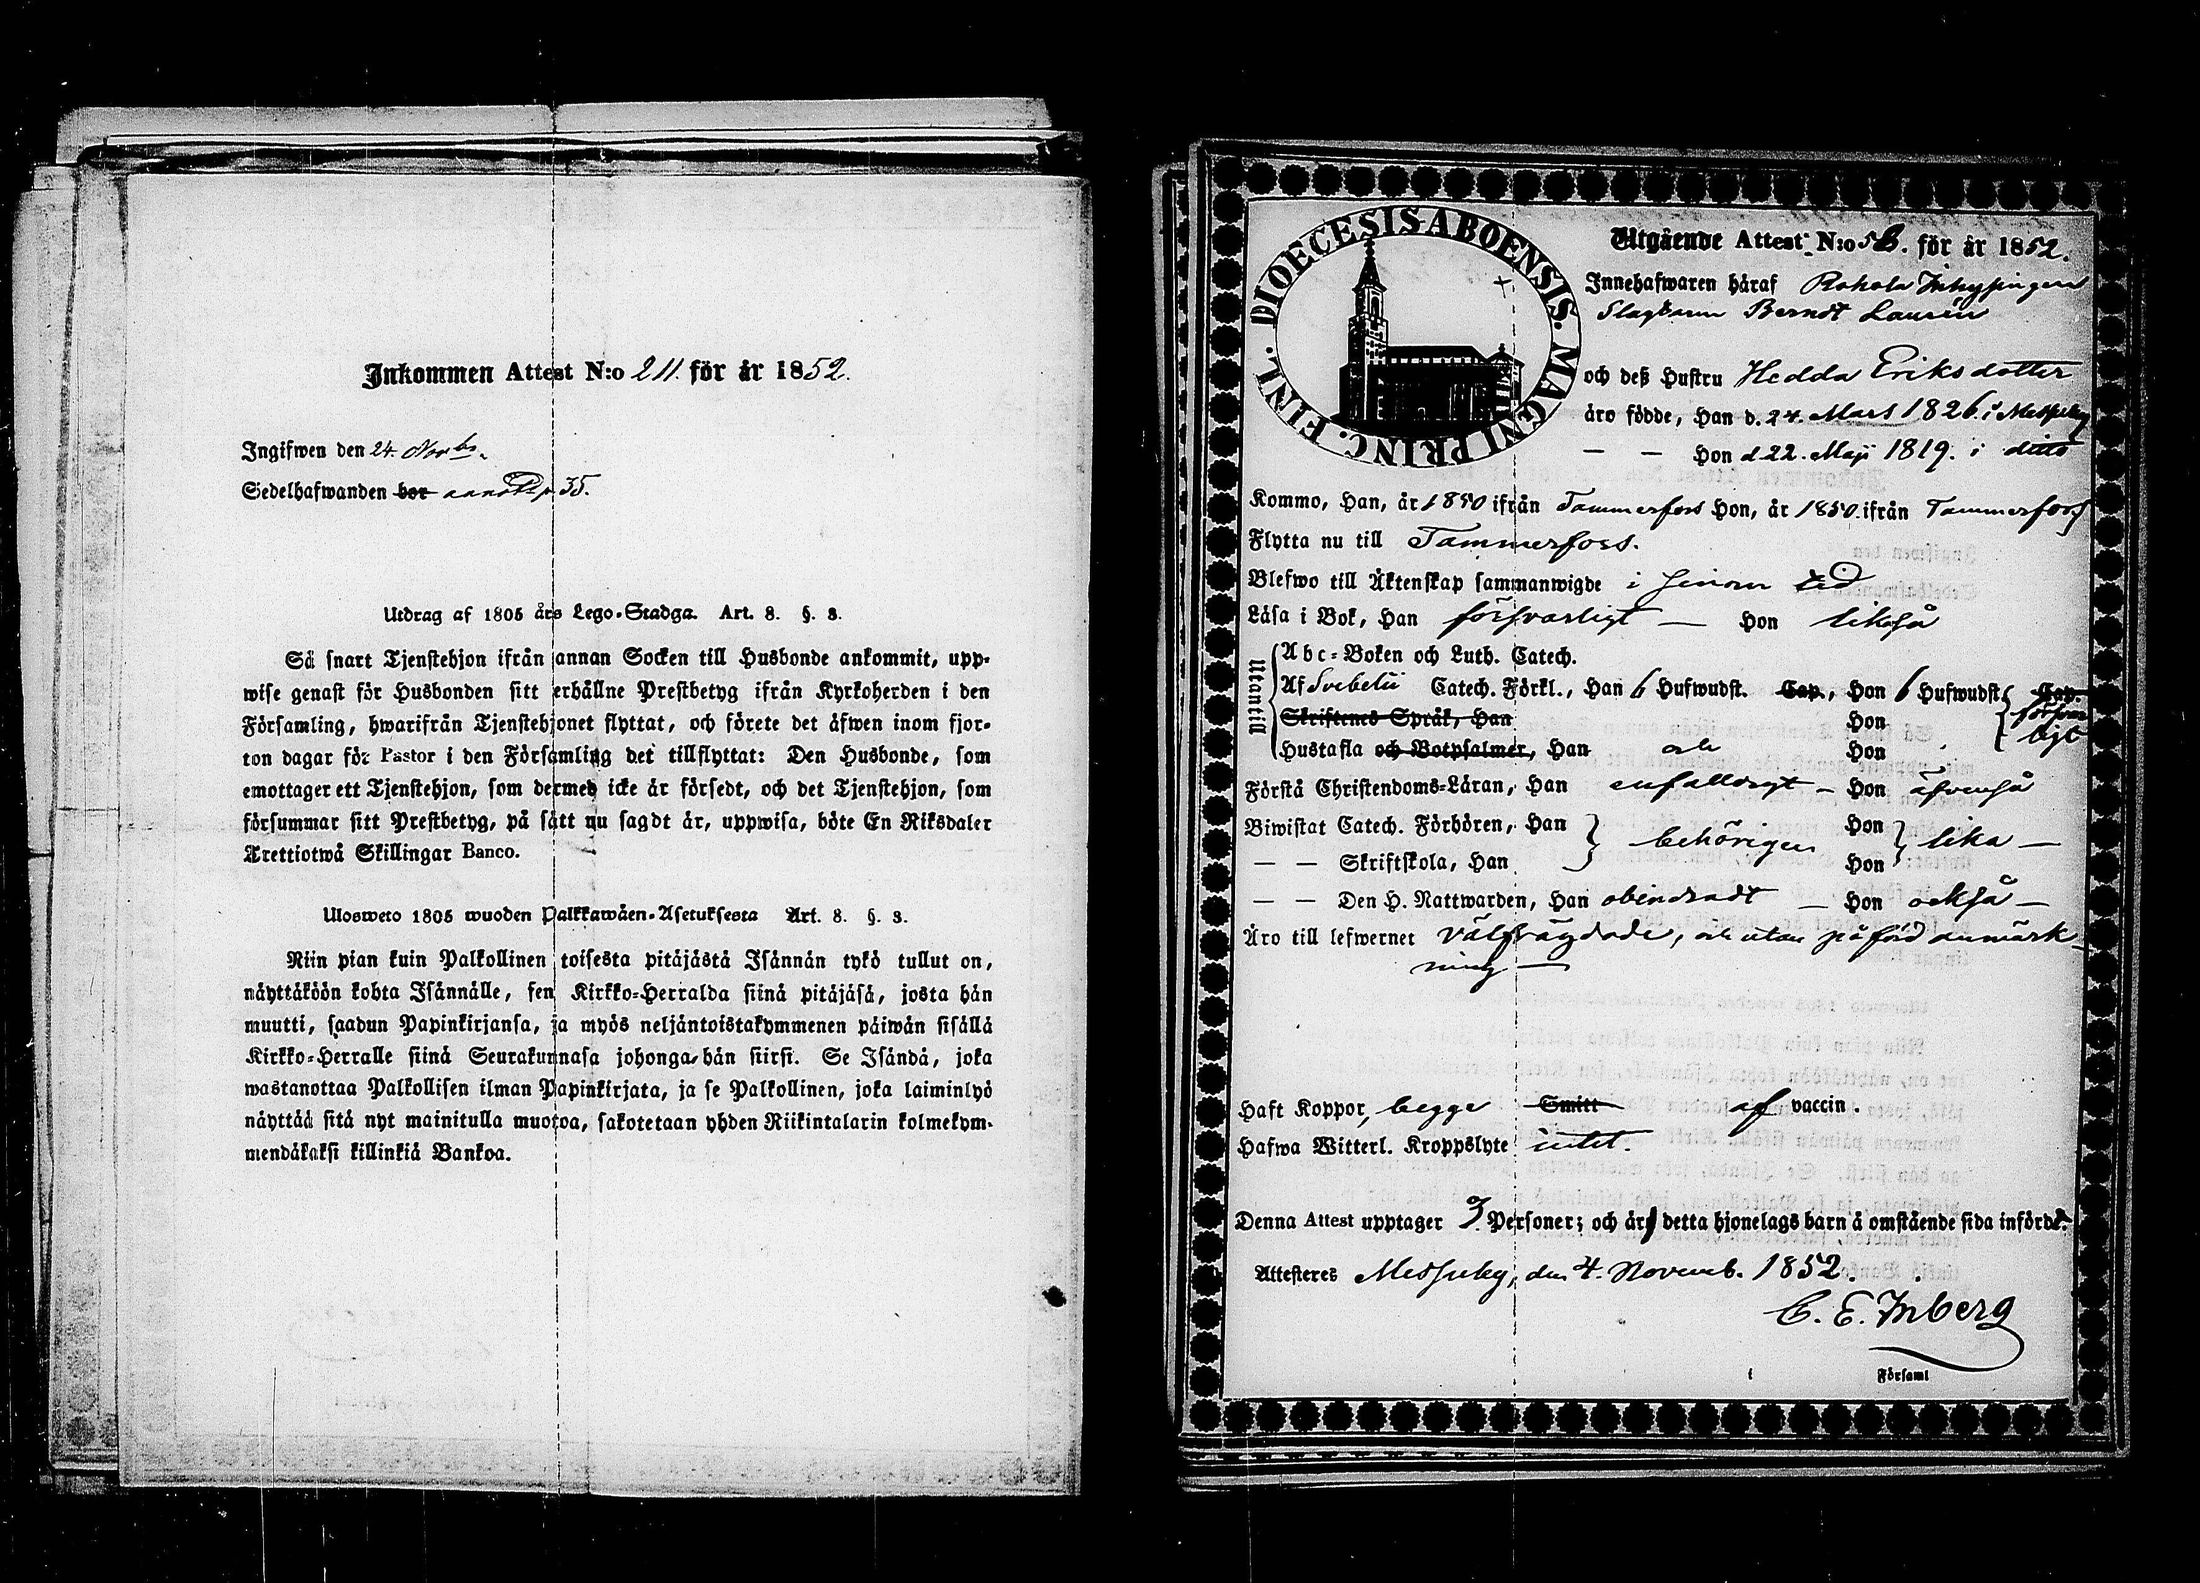 Inkommen Attest N:o 211. för år 1852.
Ingifwen den 24. Novbr.
Sedelhafwanden bor annot. p. 35.
Utdrag af 1805 års Lego-Stadga. Art. 8. §. 3.
Så snart Tjenstehjon ifrån annan Socken till Husbonde ankommit, upp-
wise genast för Husbonden sitt erhållne Prestbetyg ifrån Kyrkoherden i den
Församling, hwarifrån Tjenstehjonet flyttat, och förete det äfwen inom fjor-
ton dagar för Pastor i den Församling det tillflyttat: Den Husbonde, som
emottager ett Tjenstehjon, som dermed icke är försedt, och det Tjenstehjon, som
försummar sitt Prestbetyg, på sätt nu sagdt är, uppwisa, böte En Riksdaler
Trettiotwå Skillingar Banco.
Ulosweto 1805 wuoden Palkkawäen-Asetuksesta Art. 8. §. 3.
Niin pian kuin Palkollinen toisesta pitäjästä Isännän tykö tullut on,
näyttäköön kohta Isännälle, sen Kirkko-Herralda siinä pitäjäsä, josta hän
muutti, saadun Papinkirjansa, ja myös neljäntoistakymmenen päiwän sisällä
Kirkko-Herralle siinä Seurakunnasa johonga hän siirsi. Se Isändä, joka
wastanottaa Palkollisen ilman Papinkirjata, ja se Palkollinen, joka laiminlyö
näyttää sitä nyt mainitulla muotoa, sakotetaan yhden Riikintalarin kolmekym-
mendäkaksi killinkiä Bankoa.
DIOECESIS ABOENSIS. MAGNI PRINC. FINL.
Utgående Attest N:o 58. för år 1852.
Innehafwaren häraf Rahola Inhysingen
Slagtaren Berndt Laurén
och deß Hustru Hedda Eriksdotter
äro födde, Han d. 24. Mars 1826. i Messuby
— — Hon d 22. Maji 1819. i ditto
Kommo, Han, år 1850 ifrån Tammerfors Hon, år 1850. ifrån Tammerfors
Flytta nu till Tammerfors.
Blefwo till Äktenskap sammanwigde i sinom tid
Läsa i Bok, Han försvarligt — Hon likaså
Utantill
Abc-Boken och Luth. Catech.
Af Svebelii Catech. Förkl., Han 6 Hufwudst. Cap., Hon 6 Hufwudst. Cap.
Skriftenes Språk, Han Hon försvar
Hustafla och Botpsalmer, Han och Hon ligt
Förstå Christendoms-Läran, Han enfalldigt — Hon äfvenså
Biwistat Catech. Förhören, Han behörigen Hon lika —
— — Skriftskola, Han Hon
— — Den H. Nattwarden, Han obehindradt — Hon också —
Äro till lefwernet välfrägdade, och utan påförd anmärk-
ning —
Haft Koppor, begge Smitt af vaccin.
Hafwa Witterl. Kroppslyte intet.
Denna Attest upptager 3. Personer; och är detta hjonelags barn å omstående sida införde.
Attesteres Messuby, den 4. Novemb. 1852.
C. E. Inberg
Församl